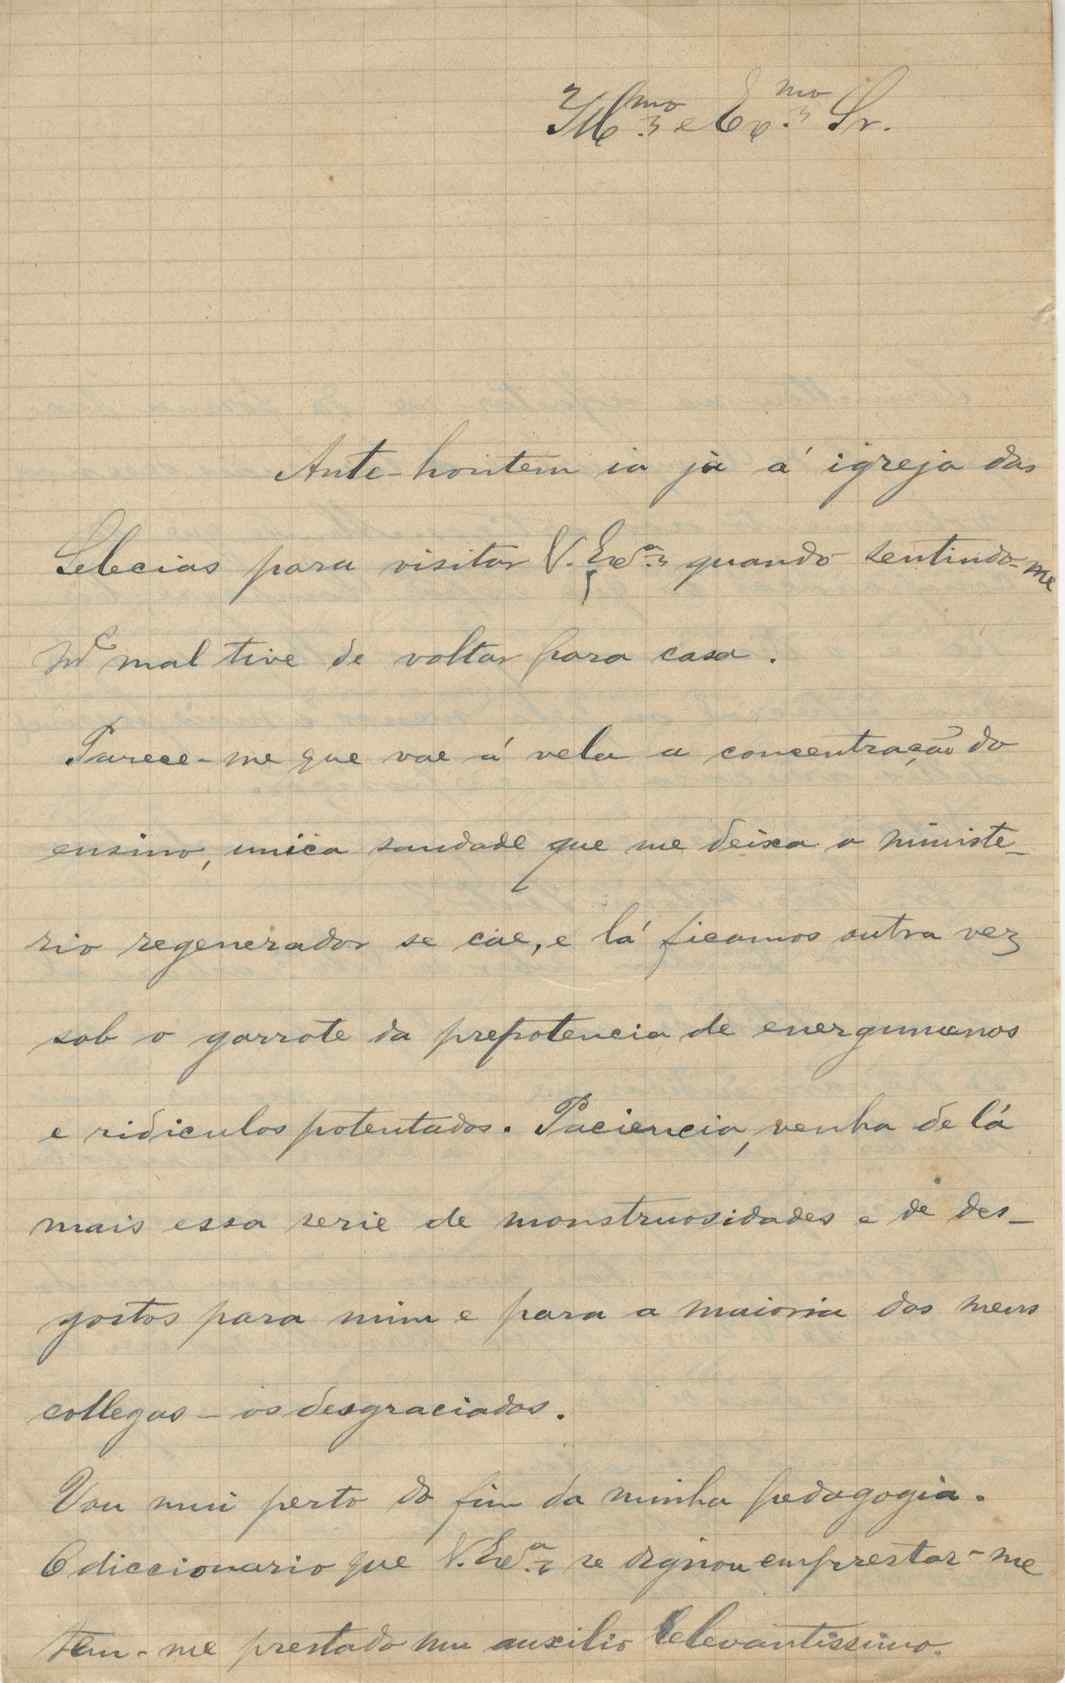 Ill.mo e Ex.mo Sr.
Ante-hontem ia já á igreja das
Selecias para visitar V. Exc.a quando sentindo-me
m.e mal tive de voltar para casa.
Parece-me que vae á vela a concentração do
ensino, unica saudade que me deixa o ministe-
rio regenerador se cáe, e lá ficamos outra vez
sob o garrote da prepotencia de energumenos
e ridiculos potentados. Paciencia, venha de lá
mais essa serie de monstruosidades e de des-
gostos para mim e para a maioria dos meus
collegas - os desgraciados.
Vou mui perto do fim da minha pedagogia.
O diccionario que V. Exc.a se dignou emprestar-me
tem-me prestado um auxilio relevantissimo.